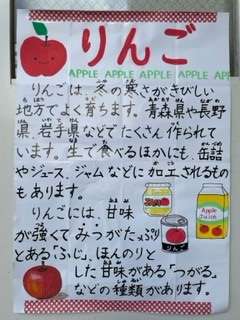 りんご
APPLE APPLE APPLE APPLE APPLE
りんごは、冬の寒さがきびしい
地方でよく育ちます。青森県や長野
県、岩手県などでたくさん作られて
います。生で食べるほかにも、缶詰
やジュース、ジャムなどに加工されるもの
もあります。
りんごには、甘味
が強くてみつがたっぷり
とある「ふじ」、ほんのりと
した甘味がある「つがる」
などの種類があります。
Apple
Juice
りんご